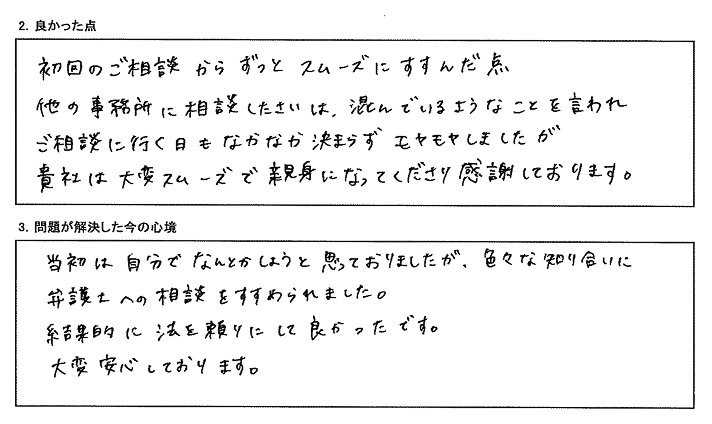 2. 良かった点
初回のご相談からずっとスムーズにすすんだ点
他の事務所に相談したさいは、混んでいるようなことを言われ
ご相談に行く日もなかなか決まらずモヤモヤしましたが
貴社は大変スムーズで親身になってくださり感謝しております。
3. 問題が解決した今の心境
当初は自分でなんとかしようと思っておりましたが、色々な知り合いに
弁護士への相談をすすめられました。
結果的に法を頼りにして良かったです。
大変安心しております。